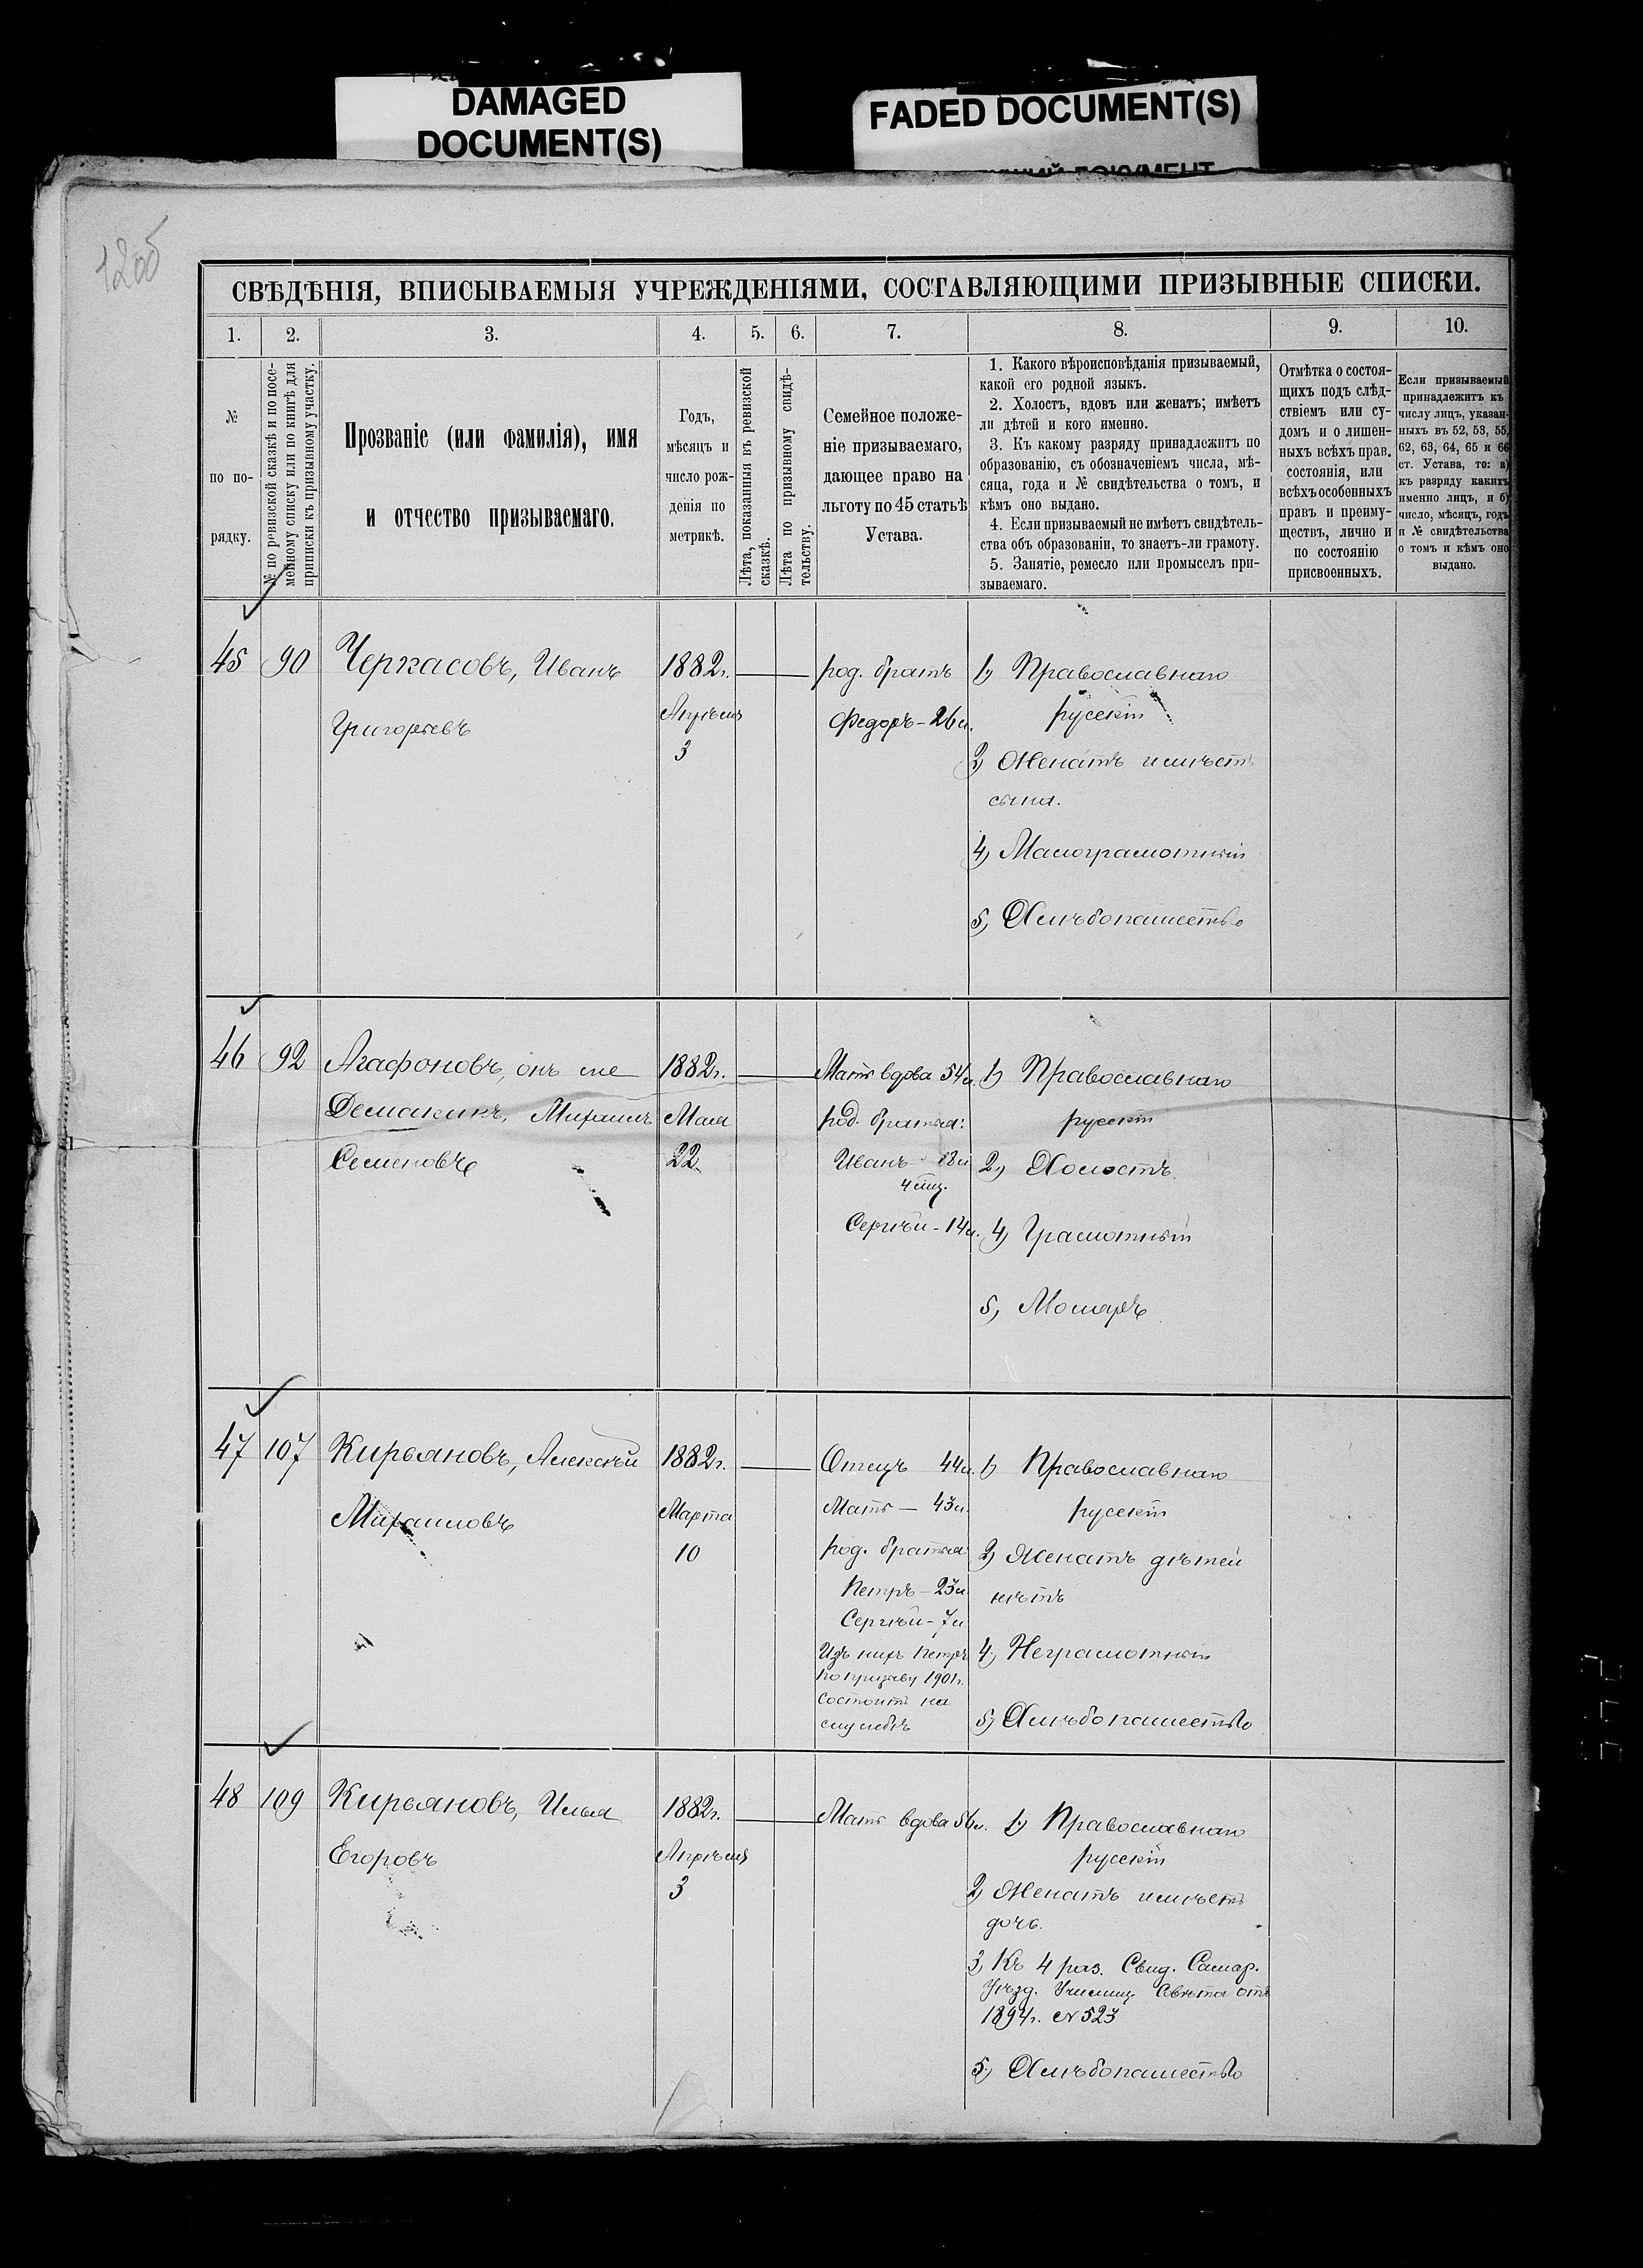 DAMAGED
DOCUMENT(S)
FADED DOCUMENT(S)
СВѢДѢНІЯ, ВПИСЫВАЕМЫЯ УЧРЕЖДЕНІЯМИ, СОСТАВЛЯЮЩИМИ ПРИЗЫВНЫЕ СПИСКИ.
1.
2.
3.
4.
5.
6.
7.
8.
9.
10.
№
по по-
рядку.
№ по ревизской сказкѣ и по посе-
мейному списку или по книгѣ для
приписки къ призывному участку.
Прозваніе (или фамилія), имя
и отчество призываемаго.
Годъ,
мѣсяцъ и
число рож-
денія по
метрикѣ.
Лѣта, показанныя въ ревизской
сказкѣ.
Лѣта по призывному свидѣ-
тельству.
Семейное положе-
ніе призываемаго,
дающее право на
льготу по 45 статьѣ
Устава.
1. Какого вѣроисповѣданія призываемый,
какой его родной языкъ.
2. Холостъ, вдовъ или женатъ; имѣетъ
ли дѣтей и кого именно.
3. Къ какому разряду принадлежитъ по
образованію, съ обозначеніемъ числа, мѣ-
сяца, года и № свидѣтельства о томъ, и
кѣмъ оно выдано.
4. Если призываемый не имѣетъ свидѣтель-
ства объ образованіи, то знаетъ-ли грамоту.
5. Занятіе, ремесло или промыселъ при-
зываемаго.
Отмѣтка о состоя-
щихъ подъ слѣд-
ствіемъ или су-
домъ и о лишен-
ныхъ всѣхъ прав.
состоянія, или
всѣхъ особенныхъ
правъ и преиму-
ществъ, лично и
по состоянію
присвоенныхъ.
Если призываемый
принадлежитъ къ
числу лицъ, указан-
ныхъ въ 52, 53, 55,
62, 63, 64, 65 и 66
ст. Устава, то: а)
къ разряду какихъ
именно лицъ, и б)
число, мѣсяцъ, годъ
и № свидѣтельства
о томъ и кѣмъ оно
выдано.
45
90
Черкасовъ, Иванъ
Григорьевъ
1882г.
Апрѣля
3
род. братъ
Федоръ - 26 л.
1) Православнаго
русскій
2) Женатъ имѣетъ
сына.
4) Малограмотный
5) Хлѣбопашество
46
92
Агафоновъ, онъ же
Демакинъ, Михаилъ
Семеновъ
1882г.
Мая
22
Мать вдова 54 л.
род. братья:
Иванъ - 18 л
4 мц.
Сергѣй - 14 л.
1) Православнаго
русскій
2) Холостъ.
4) Грамотный
5) Моляръ
47
107
Кирьяновъ, Алексѣй
Михаиловъ
1882г.
Марта
10
Отецъ 44 л.
Мать - 43 л.
род. братья
Петръ - 23 л
Сергѣй - 7 л
Изъ нихъ Петръ
по призыву 1901г.
состоитъ на
службѣ
1) Православнаго
русскій
2) Женатъ дѣтей
нѣтъ
4) Неграмотный
5) Хлѣбопашество
48
109
Кирьяновъ, Илья
Егоровъ
1882г.
Апрѣля
3
Мать вдова 56 л.
1) Православнаго
русскій
2) Женатъ имѣетъ
дочь.
3) Къ 4 раз. Свид. Самар.
Уѣзд. Училищ. Совѣта отъ
1894г. № 523
5) Хлѣбопашество